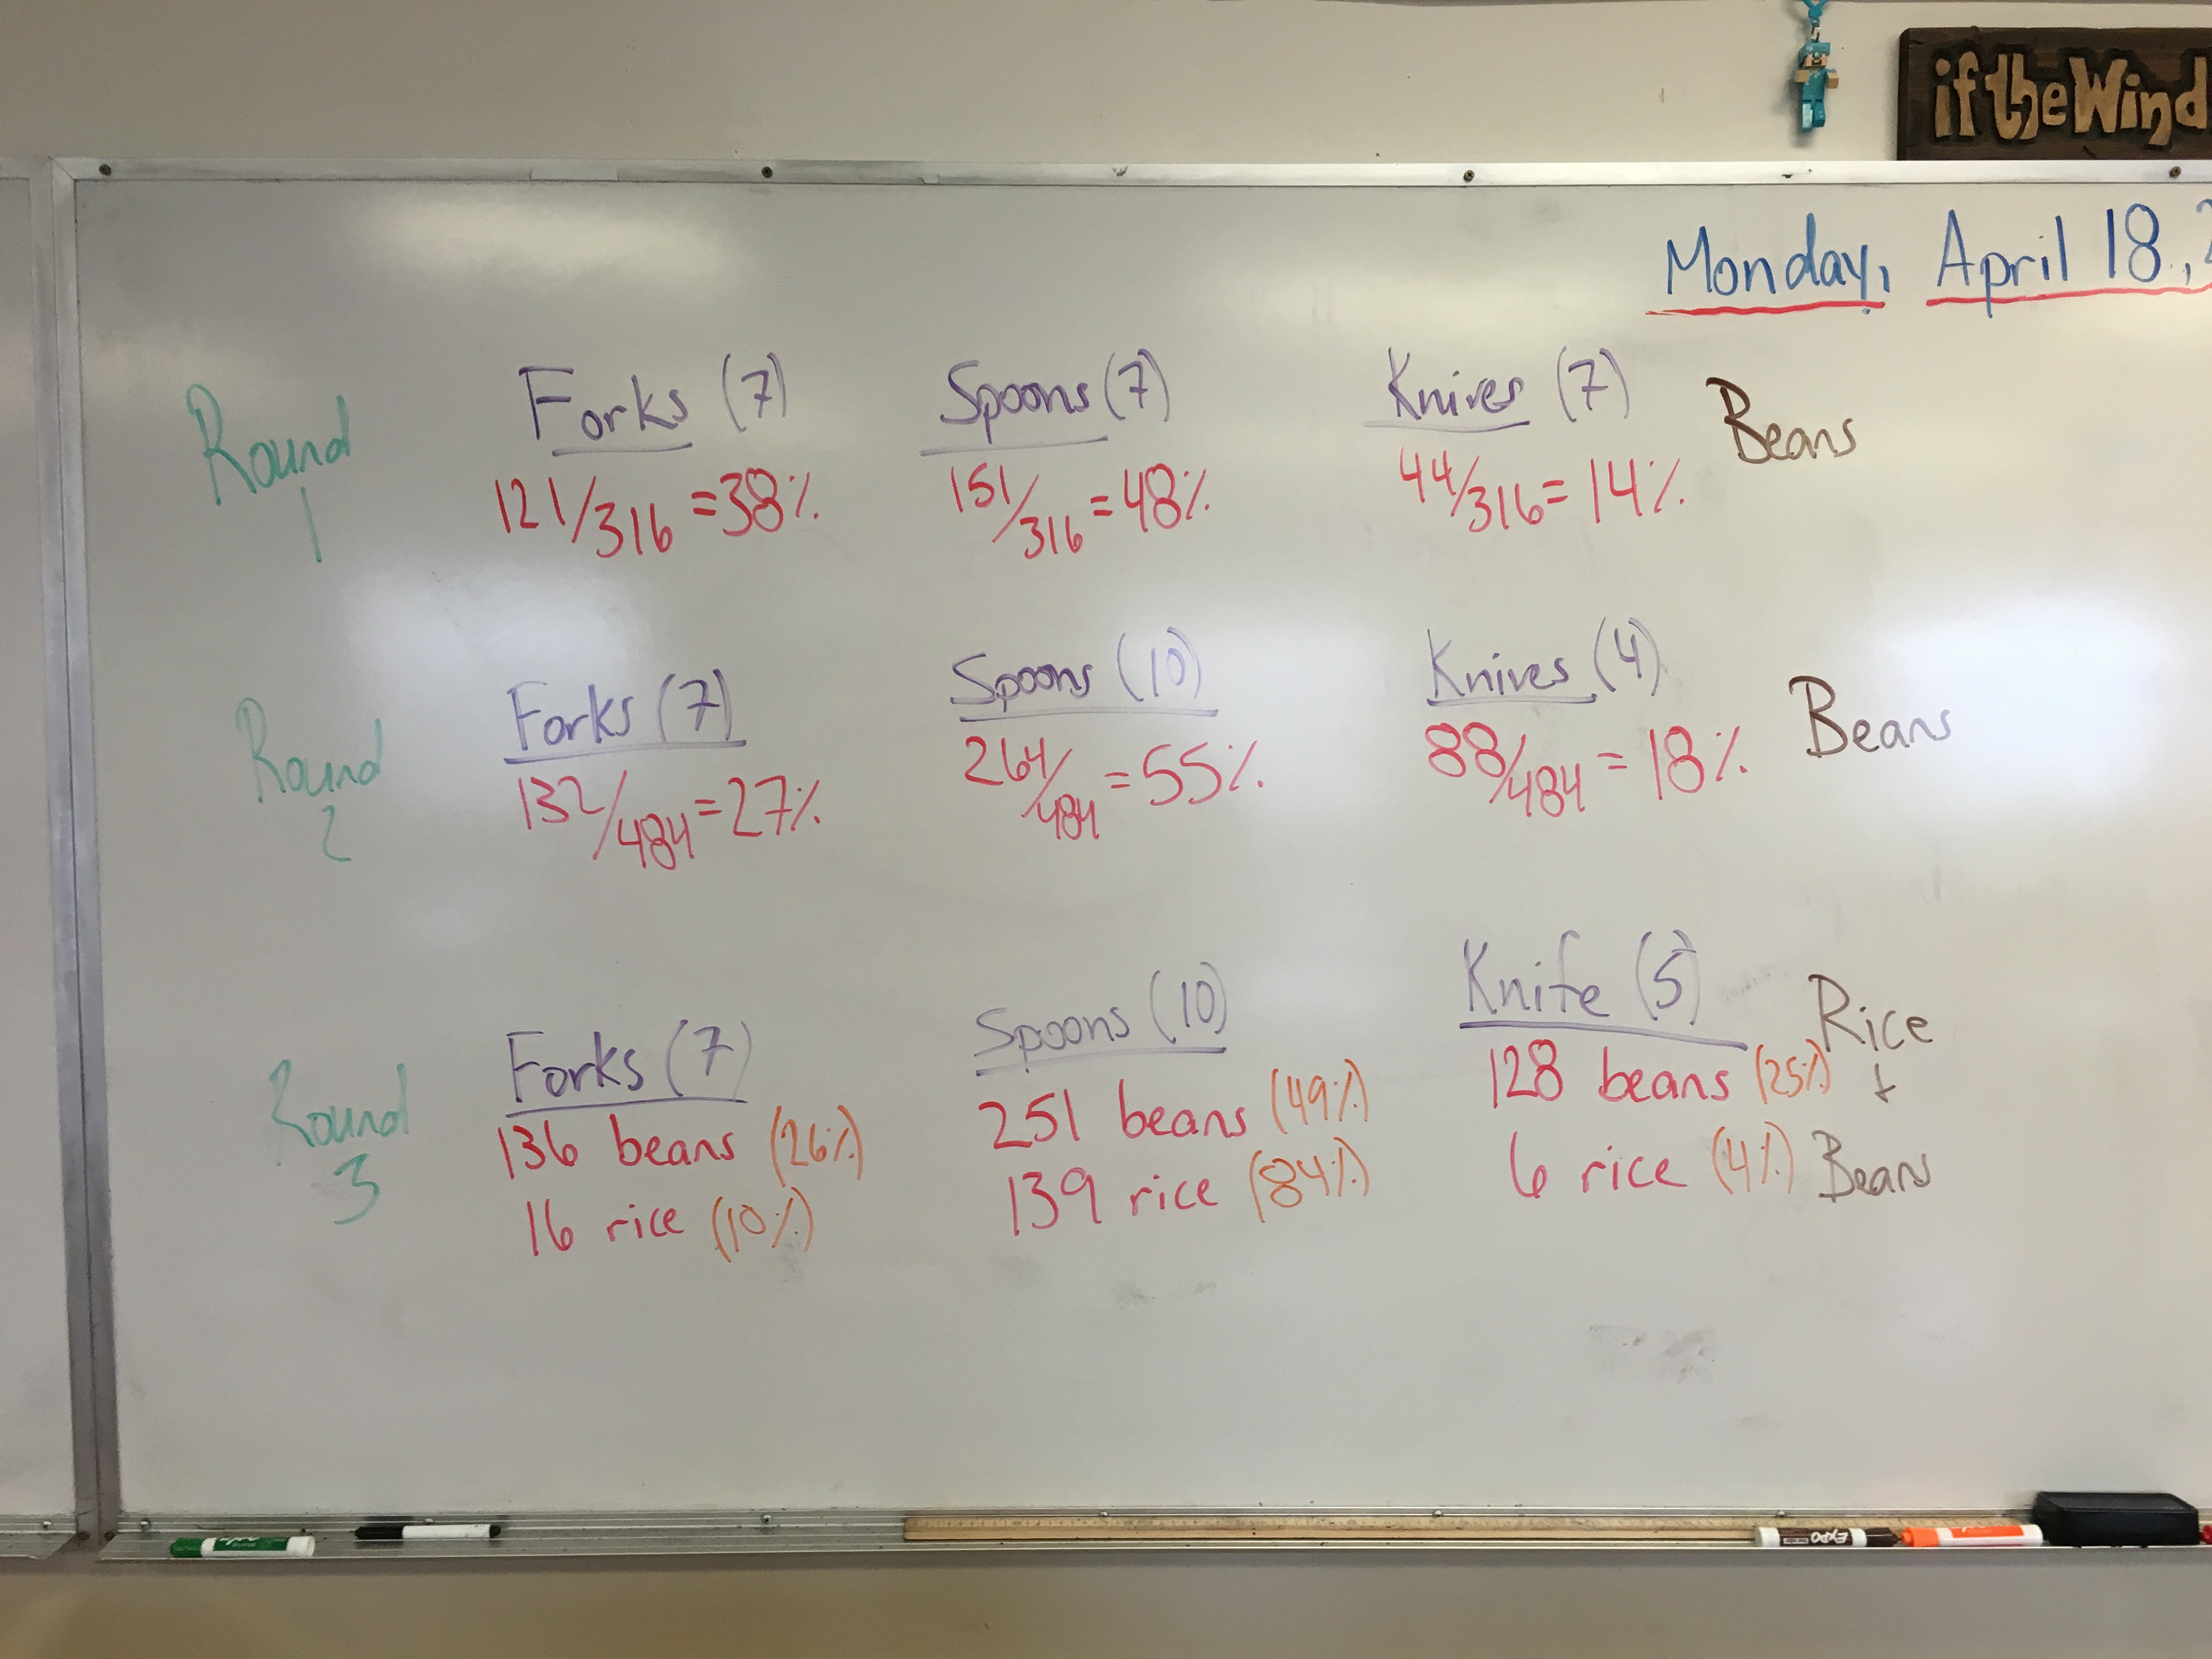 if the Wind
Monday, April 18,
Round 1
Forks (7)
121/316 = 38%
Spoons (7)
151/316 = 48%
Knives (7)
44/316 = 14%
Beans
Round 2
Forks (7)
132/484 = 27%
Spoons (10)
264/484 = 55%
Knives (4)
88/484 = 18%
Beans
Round 3
Forks (7)
136 beans (26%)
16 rice (10%)
Spoons (10)
251 beans (49%)
139 rice (84%)
Knife (5)
128 beans (25%)
6 rice (4%)
Rice
+
Beans
EXPO